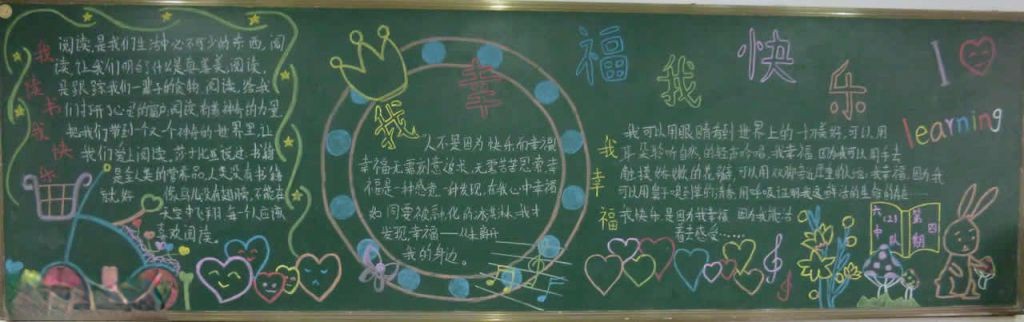 我读书我快乐
阅读,是我们生活中必不可少的东西,阅
读,让我们明白了什么是真善美,阅读,
是跟踪我们一辈子的食物,阅读,给我
们打开了心灵的窗户,阅读有着神奇的力量,
把我们带到一个又一个神奇的世界里,让
我们爱上阅读。莎士比亚说过:书籍
是全人类的营养品,人类没有书籍
就好像鸟儿没有翅膀,不能在
天空中飞翔,每一个人应该
喜欢阅读。
我幸福我快乐
"人不是因为快乐而幸福
幸福无需刻意追求,无需苦苦思索,幸
福是一种感觉,一种发现,在我心中幸福
如同要被融化的冰淇淋,我才
发现,幸福——从未离开
我的身边。
I learning
我幸福
我可以用眼睛看到世界上的一切美好,可以用
耳朵聆听自然的轻声吟唱,我幸福,因为我可以用手去
触摸娇嫩的花瓣,可以用双脚
可以用鼻子
我快乐是因为我幸福,因为我能去
看去感受……
六(2)中队
第四期